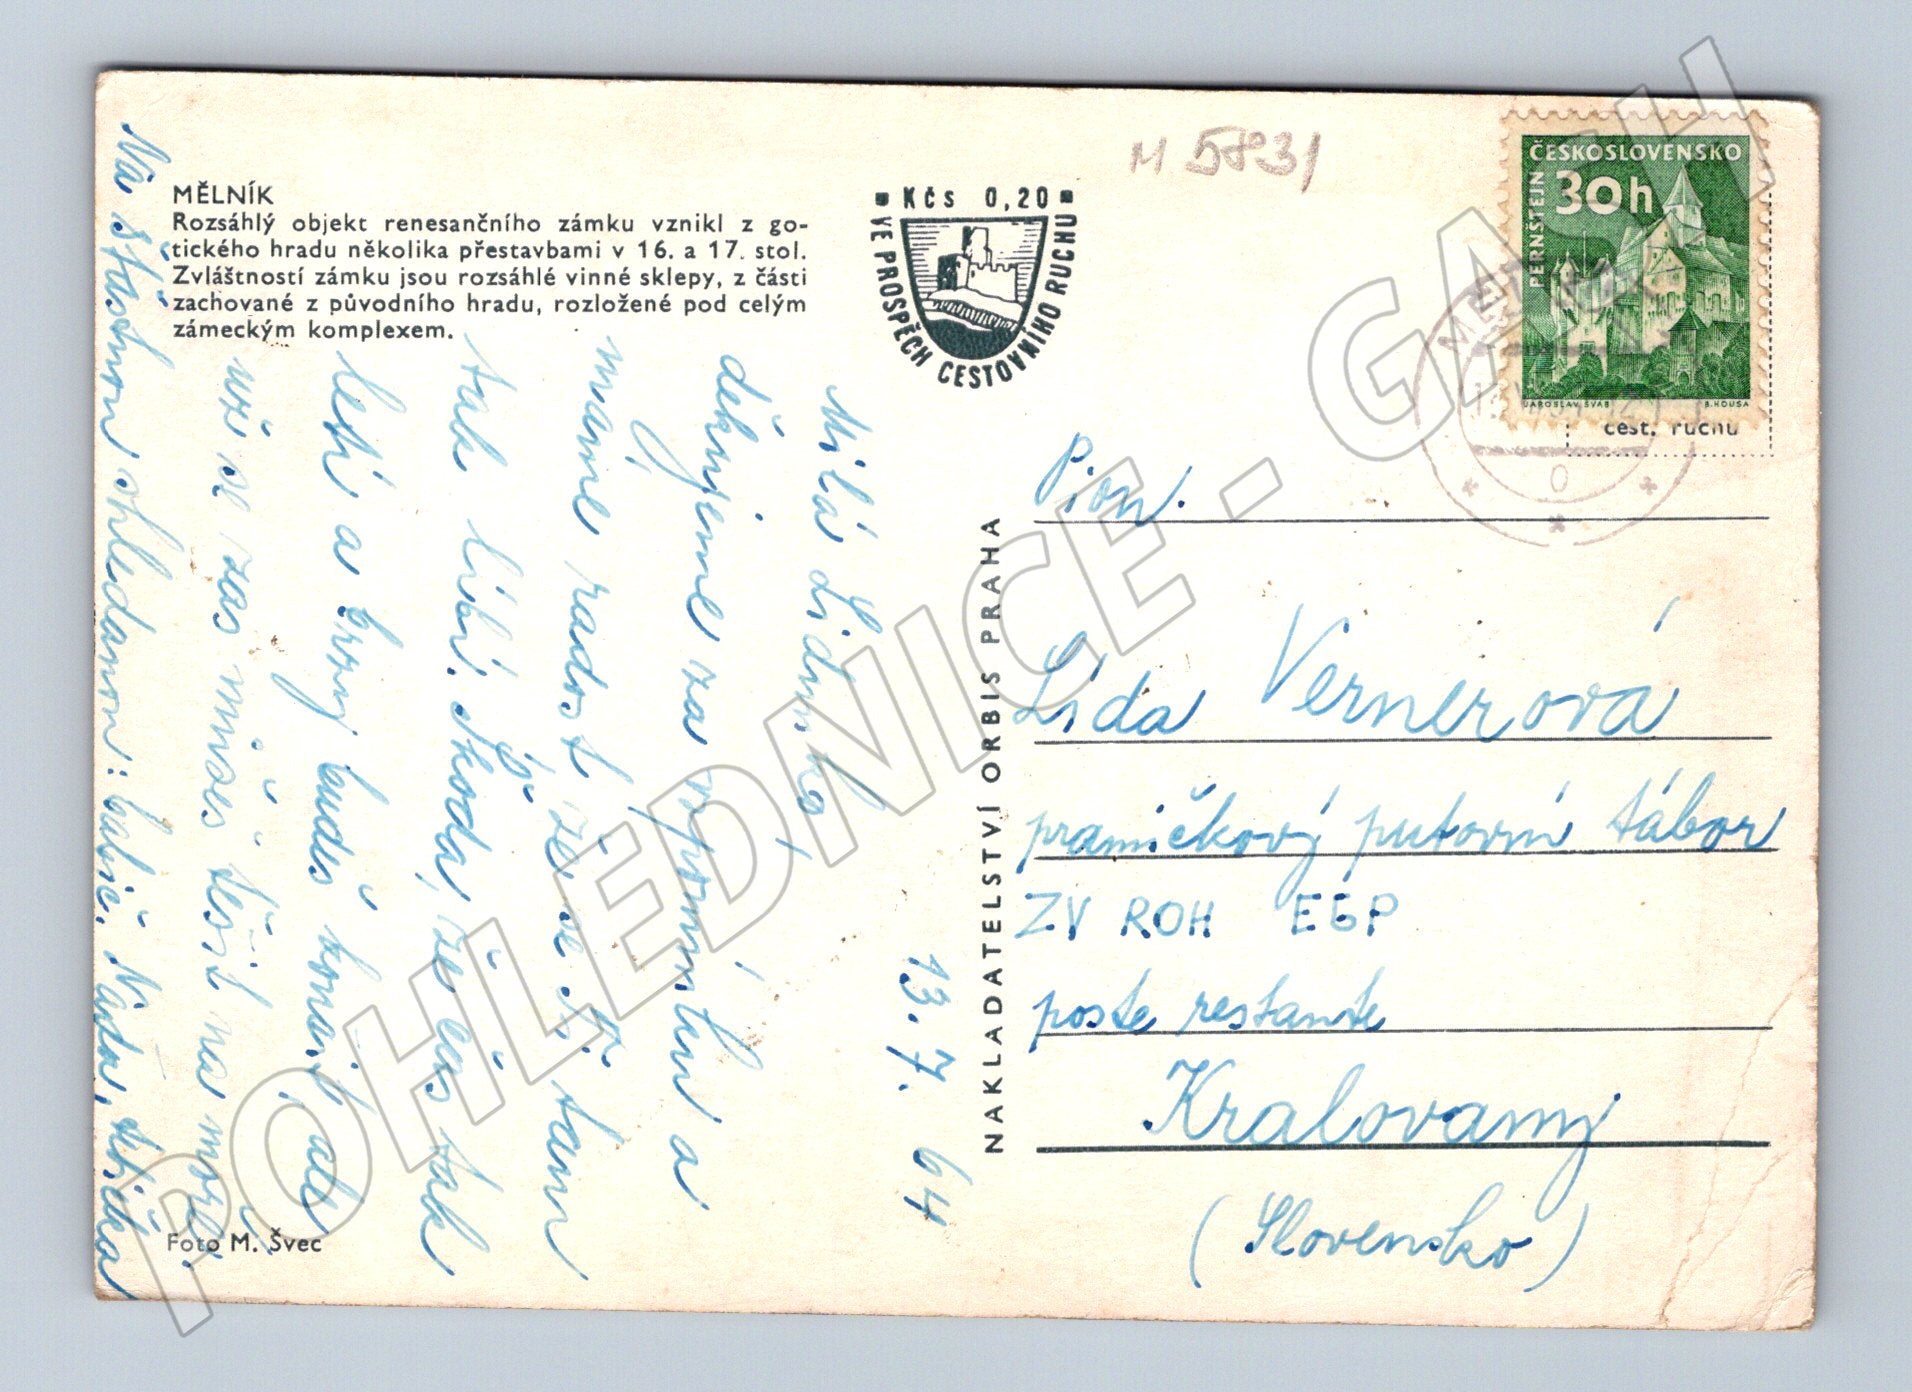 MĚLNÍK
Rozsáhlý objekt renesančního zámku vznikl z go-
tického hradu několika přestavbami v 16. a 17. stol.
Zvláštností zámku jsou rozsáhlé vinné sklepy, z části
zachované z původního hradu, rozložené pod celým
zámeckým komplexem.
KČS 0,20
VE PROSPĚCH CESTOVNÍHO RUCHU
M 5831
ČESKOSLOVENSKO
30h
PERNŠTEJN
JAROSLAV ŠVAB
B. HOUSA
cest. ruchu
MĚLNÍK
13. 7. 64
Milá Lidunko
děkujeme za vzpomínku a
máme radost, že se ti tam
tak líbí. Škoda, že čas tak
letí a brzy budeš končit, ale
už se zas můžeš těšit na moře.
Na šťastnou shledanou: babič. Naďa, Jiřka
NAKLADATELSTVÍ ORBIS PRAHA
Pion.
Lída Vernerová
pramičkový putovní tábor
ZV ROH EGP
poste restante
Kralovany
(Slovensko)
Foto M. Švec
POHLEDNICE - GALAH